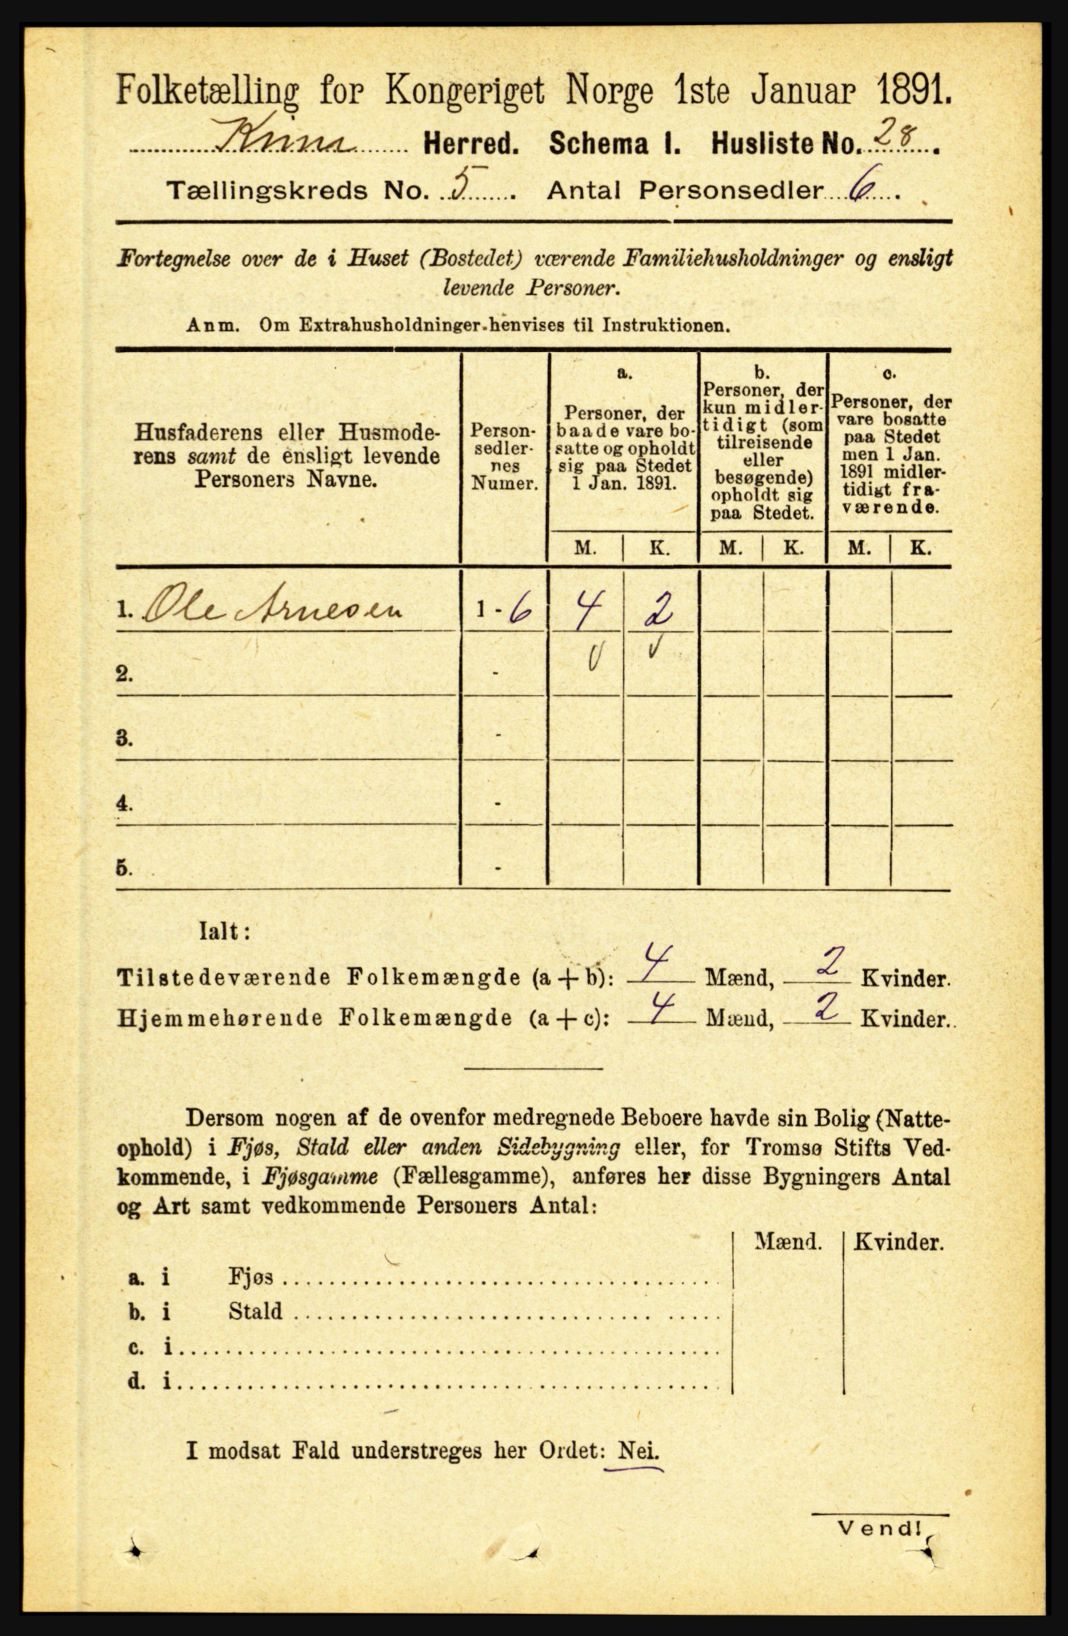 Folketælling for Kongeriget Norge 1ste Januar 1891.
Kinn Herred. Schema I. Husliste No. 28.
Tællingskreds No. 5. Antal Personsedler 6.
Fortegnelse over de i Huset (Bostedet) værende Familiehusholdninger og ensligt
levende Personer.
Anm. Om Extrahusholdninger henvises til Instruktionen.
Husfaderens eller Husmode-
rens samt de ensligt levende
Personers Navne.
Person-
sedler-
nes
Numer.
a.
Personer, der
baade vare bo-
satte og opholdt
sig paa Stedet
1 Jan. 1891.
b.
Personer, der
kun midler-
tidigt (som
tilreisende
eller
besøgende)
opholdt sig
paa Stedet.
c.
Personer, der
vare bosatte
paa Stedet
men 1 Jan.
1891 midler-
tidigt fra-
værende.
M. K. M. K. M. K.
1. Ole Arnesen 1 - 6 4 2
2. -
3. -
4. -
5. -
Ialt:
Tilstedeværende Folkemængde (a + b): 4 Mænd, 2 Kvinder.
Hjemmehørende Folkemængde (a + c): 4 Mænd, 2 Kvinder.
Dersom nogen af de ovenfor medregnede Beboere havde sin Bolig (Natte-
ophold) i Fjøs, Stald eller anden Sidebygning eller, for Tromsø Stifts Ved-
kommende, i Fjøsgamme (Fællesgamme), anføres her disse Bygningers Antal
og Art samt vedkommende Personers Antal:
Mænd. Kvinder.
a. i Fjøs
b. i Stald
c. i
d. i
I modsat Fald understreges her Ordet: Nei.
Vend!